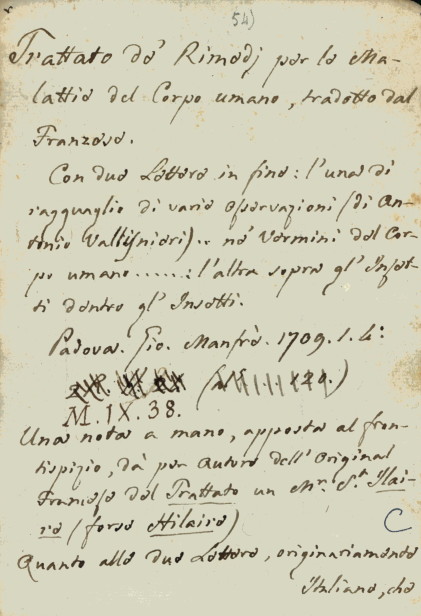 54)
Trattato de' Rimedj per le Ma-
lattie del Corpo umano, tradotto dal
Franzese.
Con due Lettere in fine: l'una di
ragguaglio di varie osservazioni (di An-
tonio Vallisnieri).. ne' Vermini del Cor-
po umano......: l'altra sopra gl' Inset-
ti dentro gl' Insetti.
Padova. Gio. Manfrè. 1709. 1. 4:
M. IX. 38.
Una nota a mano, apposta al fron-
tispizio, dà per Autore dell' Original
Francese del Trattato un Mr. St. Ilai-
re (forse Hilaire)
C
Quanto alle due Lettere, originariamente
Italiane, che